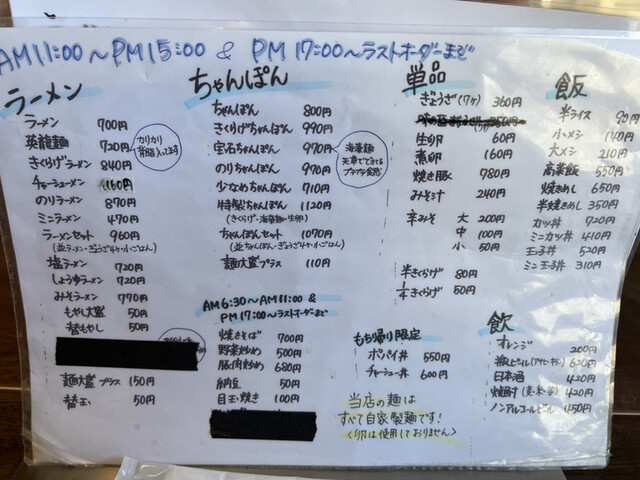 AM11:00～PM15:00 & PM17:00～ラストオーダーまで
ラーメン
ラーメン 700円
英龍麺 720円
カリカリ
背脂入ってます
きくらげラーメン 840円
チャーシューメン 1160円
のりラーメン 870円
ミニラーメン 470円
ラーメンセット 960円
(並ラーメン・ぎょうざ4ケ・小ごはん)
塩ラーメン 720円
しょうゆラーメン 720円
みそラーメン 770円
もやし大盛 50円
替もやし 50円
麺大盛プラス 150円
替玉い 50円
ちゃんぽん
ちゃんぽん 800円
きくらげちゃんぽん 990円
宝石ちゃんぽん 970円
海藻麺
天草でできている
プチプチ食感
のりちゃんぽん 970円
少なめちゃんぽん 710円
特製ちゃんぽん 1120円
(きくらげ・海藻麺・生卵)
ちゃんぽんセット 1070円
(並ちゃんぽん・ぎょうざ4ケ・小ごはん)
麺大盛プラス 110円
AM6:30～AM11:00 &
PM17:00～ラストオーダーまで
焼きそば 700円
野菜炒め 500円
豚肉炒め 680円
納豆 50円
目玉焼き 100円
単品
ぎょうざ(7ケ) 360円
生卵 60円
煮卵 160円
焼き豚 780円
みそ汁 240円
辛みそ 大 200円
中 100円
小 50円
半きくらげ 80円
1/4きくらげ 50円
もち帰り限定
ポパイ丼 550円
チャーシュー丼 600円
当店の麺は
すべて自家製麺です!
<卵は使用しておりません>
飯
半ライス 90円
小メシ 140円
大メシ 210円
高菜飯 550円
焼めし 650円
半焼めし 350円
カツ丼 720円
ミニカツ丼 410円
玉子丼 520円
ミニ玉子丼 310円
飲
オレンジ 200円
日本酒 420円
焼酎(麦・米・芋) 420円
ノンアルコールビール 450円